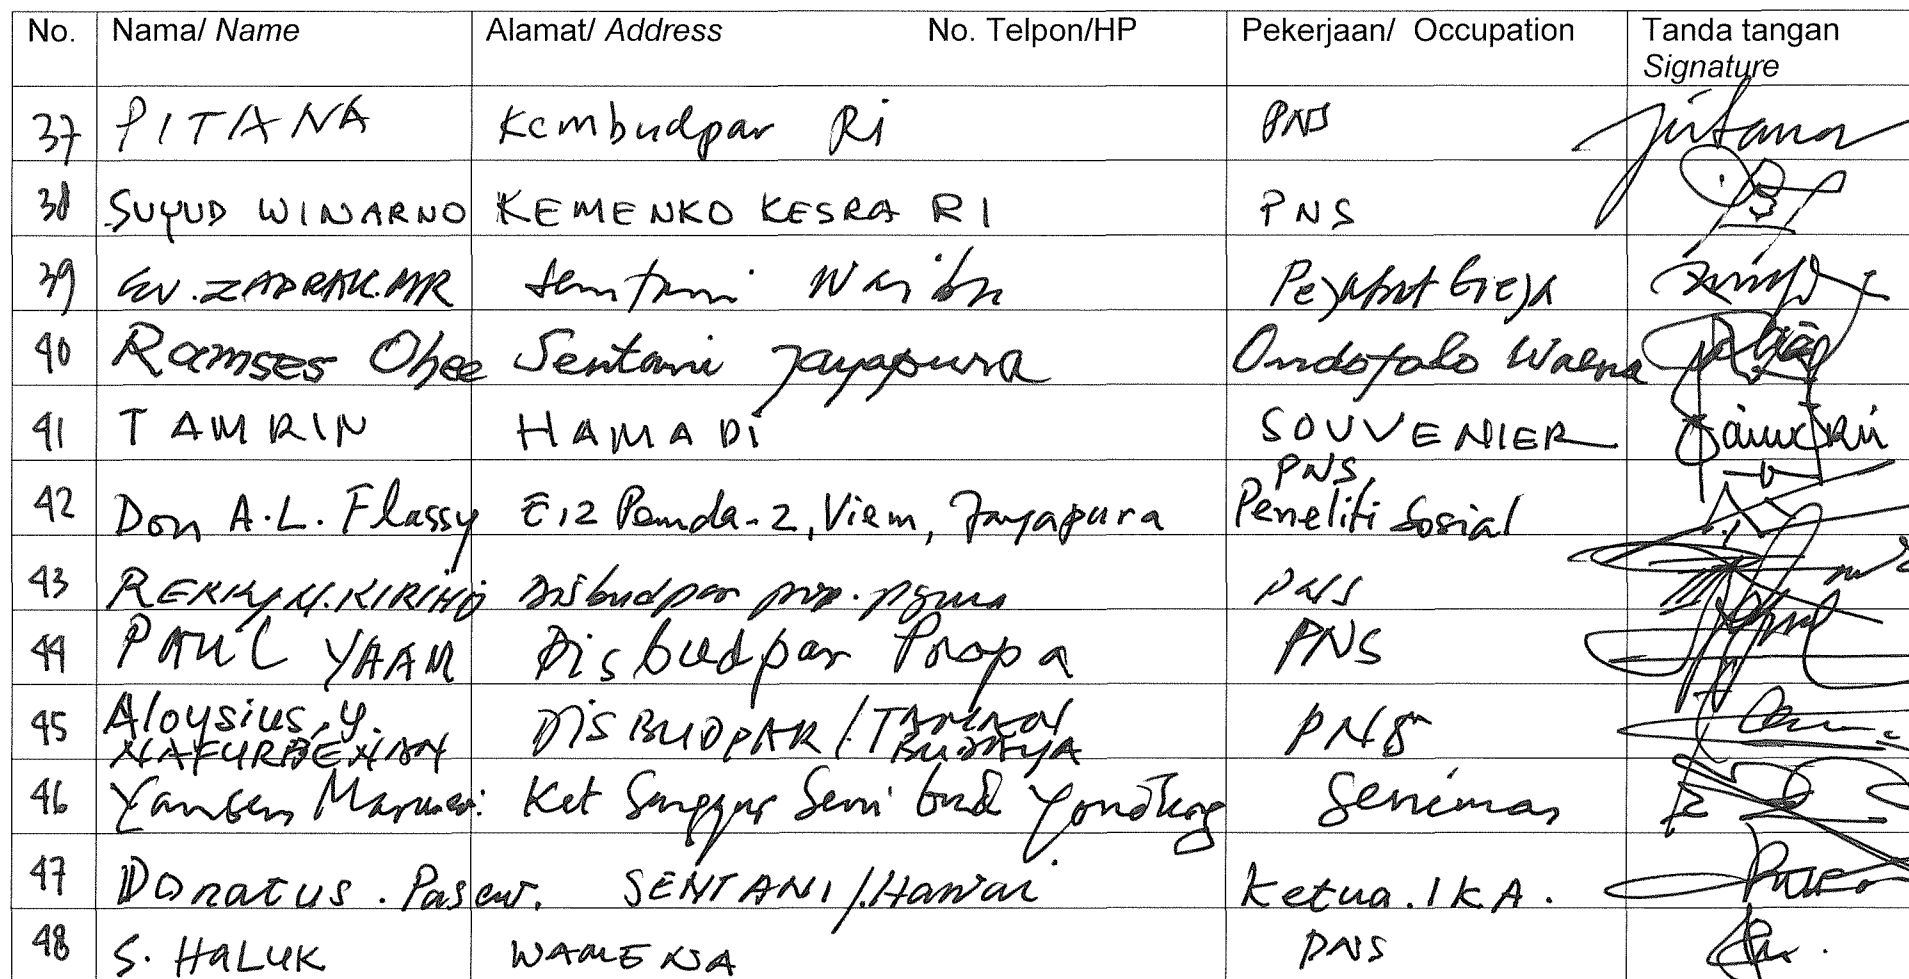 No. Nama/ Name Alamat/ Address No. Telpon/HP Pekerjaan/ Occupation Tanda tangan
Signature
37 PITANA Kembudpar Ri PNS
38 SUYUD WINARNO KEMENKO KESRA RI PNS
39 EV. ZADRAK.MR Sentani Waibu Pejabat Greja
40 Ramses Ohee Sentani Jayapura Ondofolo Waena
41 TAMRIN HAMADi SOUVENIER
PNS,
42 Don A.L. Flassy E12 Pemda-2, Viem, Jayapura Peneliti Sosial
43 Disbudpar prop. papua PNS
44 PAUL YAAM Disbudpar Propa PNS
45 Aloysius, Y. DISBUDPAR/TAMAN PNS
NAFURBENAN BUDAYA
46 Yansen Ket Sanggar Seni Seniman
47 Donatus . Pasew. SENTANI/Hawai Ketua . IKA .
48 S. HALUK WAMENA PNS